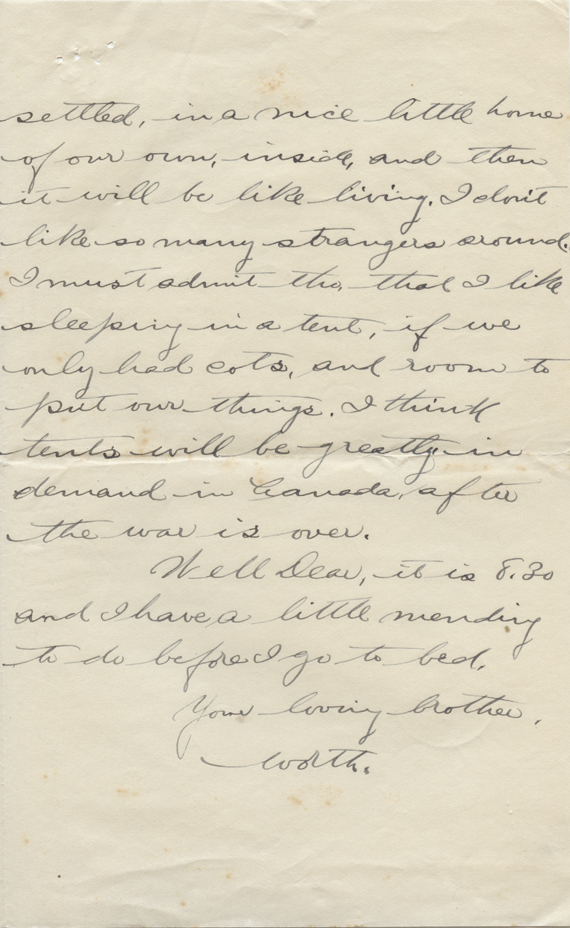 settled, in a nice little home
of our own, inside, and then
it will be like living. I don't
like so many strangers around.
I must admit tho, that I like
sleeping in a tent, if we
only had cots, and room to
put our things. I think
tents will be greatly in
demand in Canada, after
the war is over.
Well Dear, it is 8.30
and I have a little mending
to do before I go to bed.
Your loving brother,
Worth.